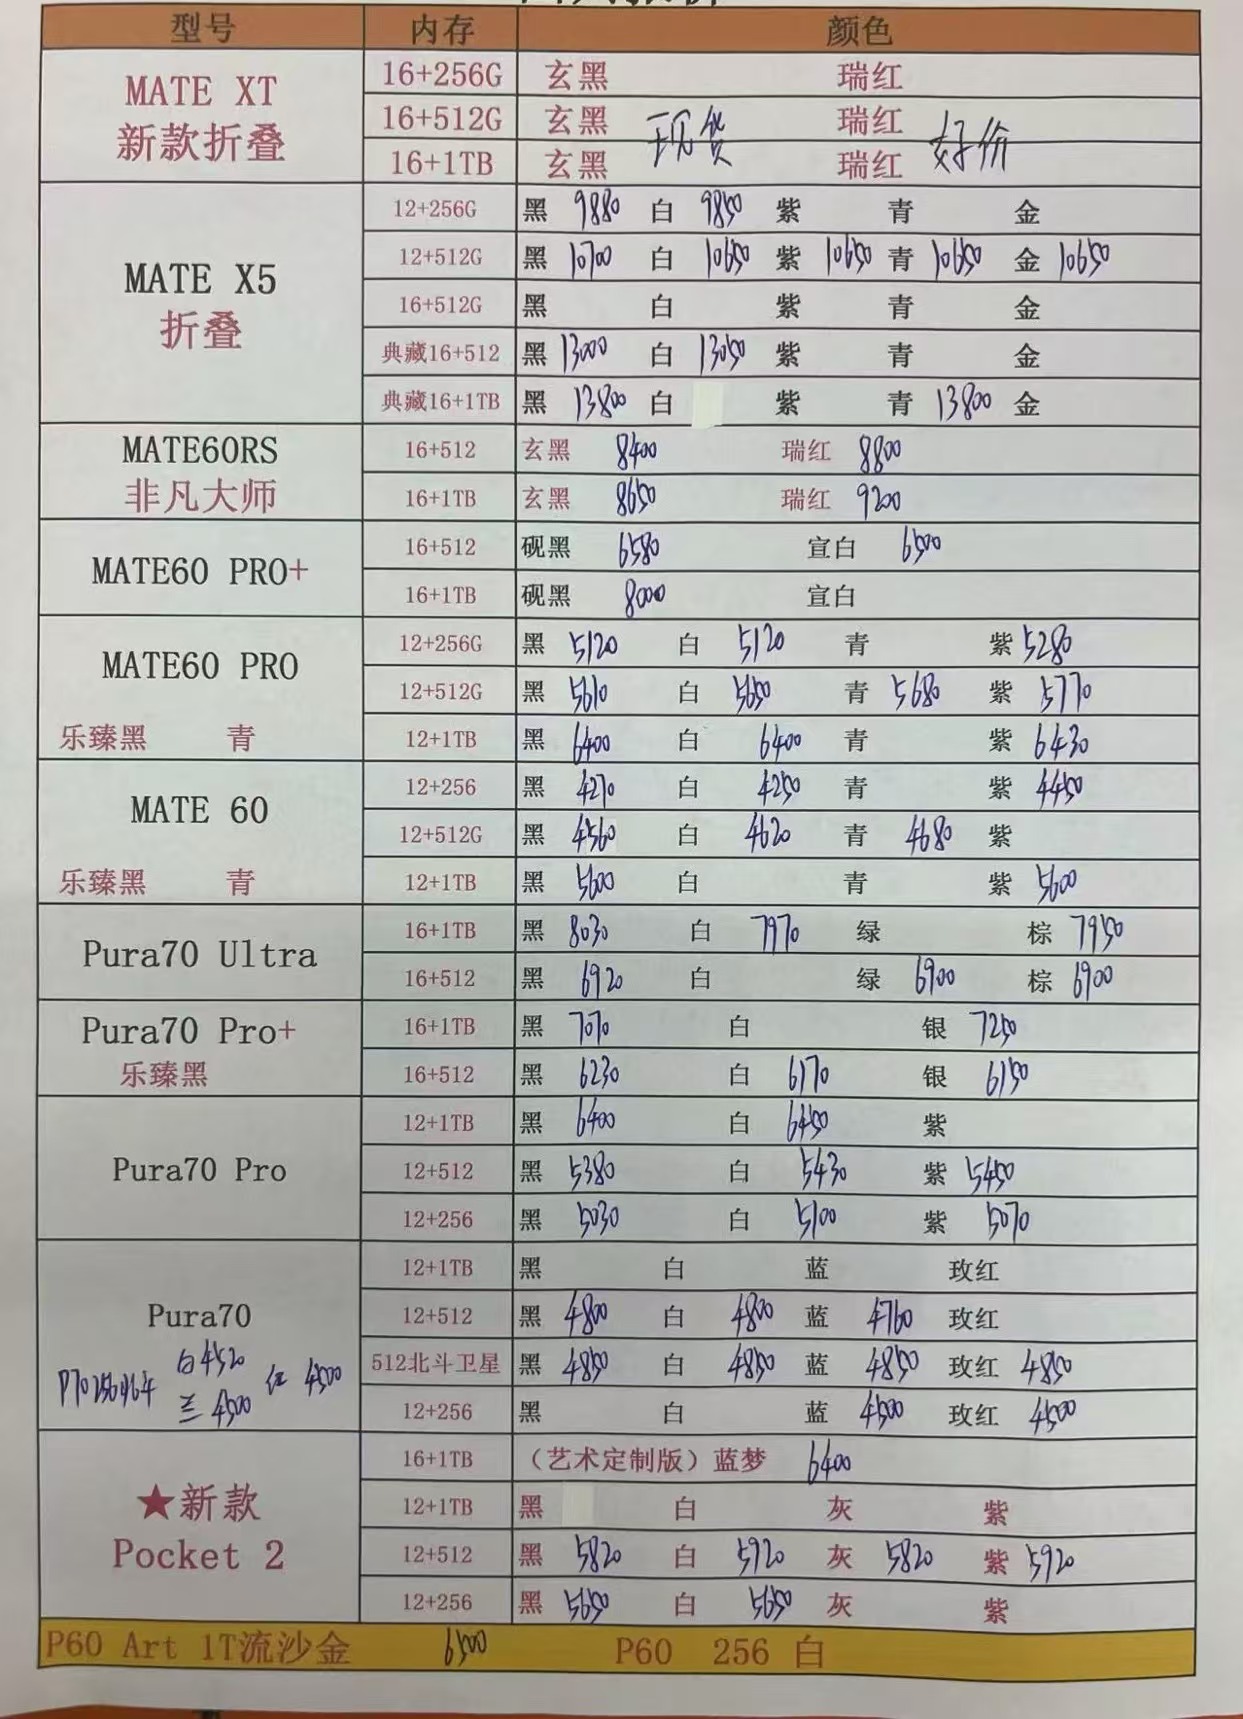 型号 内存 颜色
MATE XT 新款折叠 16+256G 玄黑 瑞红
16+512G 玄黑 现货 瑞红 好价
16+1TB 玄黑 瑞红
MATE X5 折叠 12+256G 黑 9880 白 9850 紫 青 金
12+512G 黑 10700 白 10650 紫 10650 青 10650 金 10650
16+512G 黑 白 紫 青 金
典藏16+512 黑 13000 白 13050 紫 青 金
典藏16+1TB 黑 13800 白 紫 青 13800 金
MATE60RS 非凡大师 16+512 玄黑 8400 瑞红 8800
16+1TB 玄黑 8650 瑞红 9200
MATE60 PRO+ 16+512 砚黑 6580 宣白 6500
16+1TB 砚黑 8000 宣白
MATE60 PRO 12+256G 黑 5120 白 5120 青 紫 5280
12+512G 黑 5610 白 5650 青 5680 紫 5770
乐臻黑 青 12+1TB 黑 6400 白 6400 青 紫 6430
MATE 60 12+256 黑 4270 白 4250 青 紫 4450
12+512G 黑 4560 白 4620 青 4680 紫
乐臻黑 青 12+1TB 黑 5600 白 青 紫 5600
Pura70 Ultra 16+1TB 黑 8030 白 7970 绿 棕 7950
16+512 黑 6920 白 绿 6900 棕 6900
Pura70 Pro+ 16+1TB 黑 7070 白 银 7250
乐臻黑 16+512 黑 6230 白 6170 银 6150
Pura70 Pro 12+1TB 黑 6400 白 6450 紫
12+512 黑 5380 白 5430 紫 5450
12+256 黑 5030 白 5100 紫 5070
Pura70 12+1TB 黑 白 蓝 玫红
12+512 黑 4800 白 4800 蓝 4760 玫红
白4520 红 4500 512北斗卫星 黑 4850 白 4850 蓝 4850 玫红 4850
兰 4500 12+256 黑 白 蓝 4500 玫红 4500
★新款 Pocket 2 16+1TB （艺术定制版）蓝梦 6400
12+1TB 黑 白 灰 紫
12+512 黑 5820 白 5920 灰 5820 紫 5920
12+256 黑 5650 白 5650 灰 紫
P60 Art 1T流沙金 6500 P60 256 白